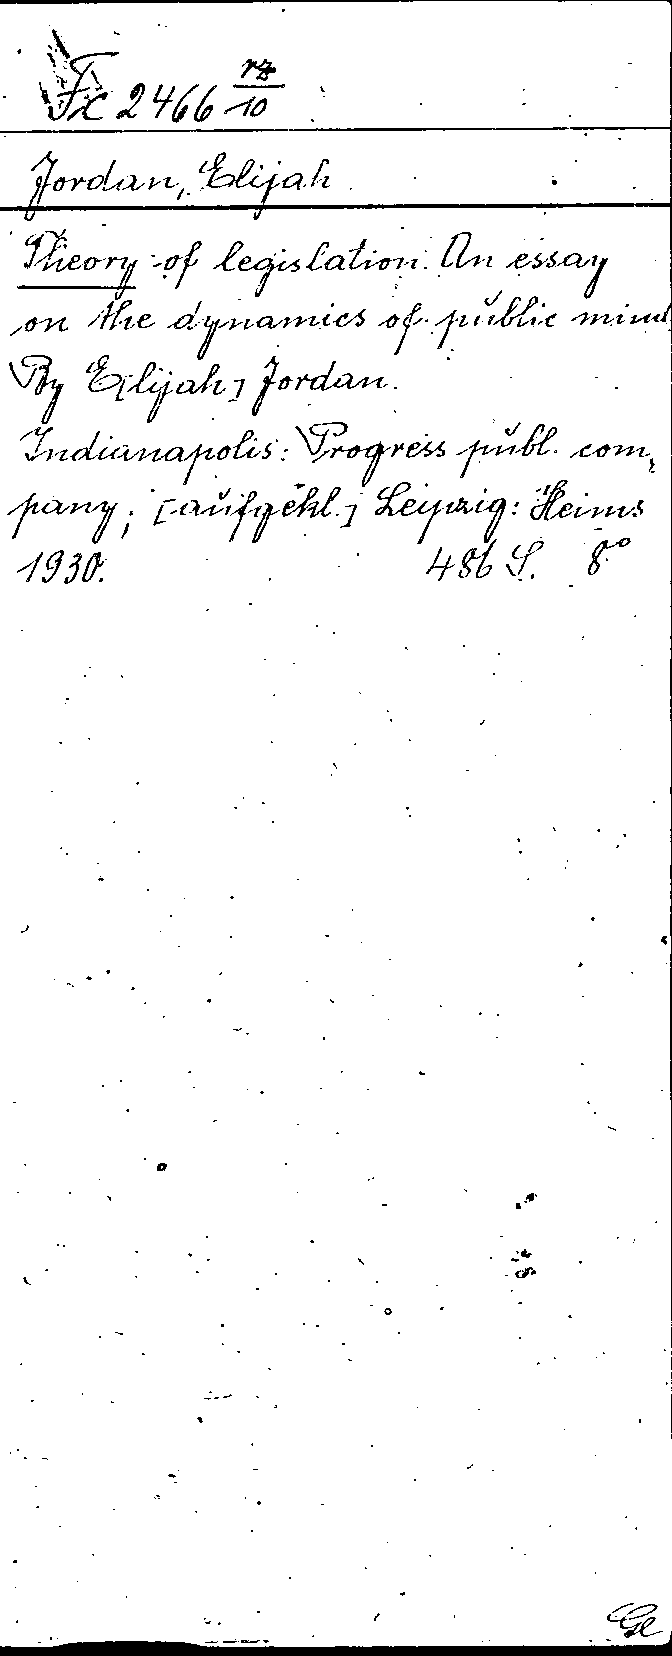 Fx 2466 rz/10
Jordan, Elijah
Theory of legislation. An essay
on the dynamics of public mind
By E[lijah] Jordan.
Indianapolis: Progress publ. com-
pany; [aufgekl.] Leipzig: Heims
1930. 486 S. 8°
Ge